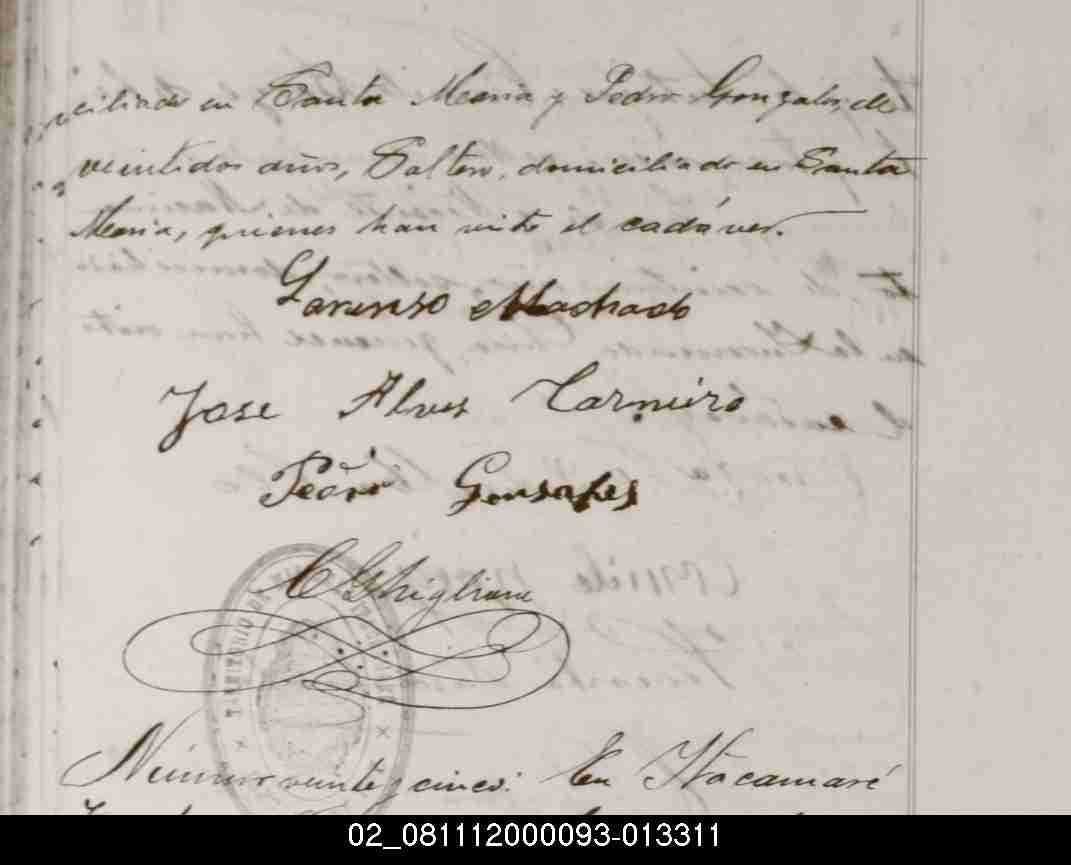 ciliado en Santa Maria y Pedro Gonzales, de
veintidos años, Soltero, domiciliado en Santa
Maria, quienes han visto el cadáver.
Lorenso Machado
Jose Alves Carneiro
Pedro Gonsales
C Ghigliane
TERRITORIO
Número veinte y cinco: En Itacamaré
02_081112000093-013311